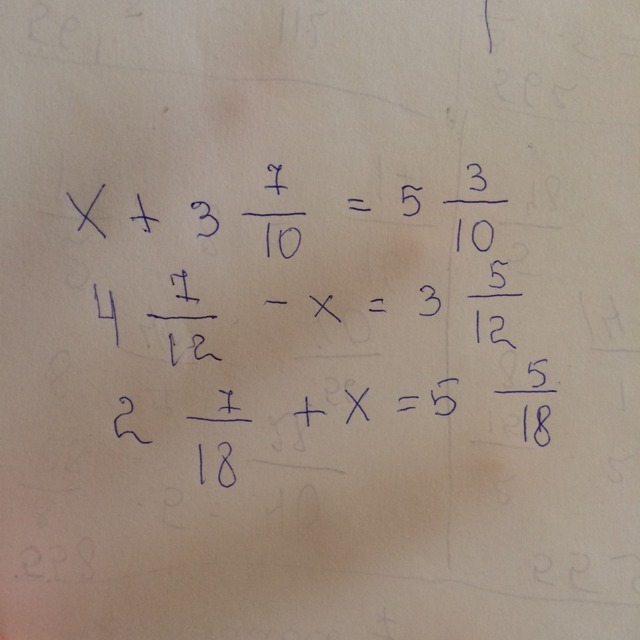 x + 3 7/10 = 5 3/10
4 7/12 - x = 3 5/12
2 7/18 + x = 5 5/18